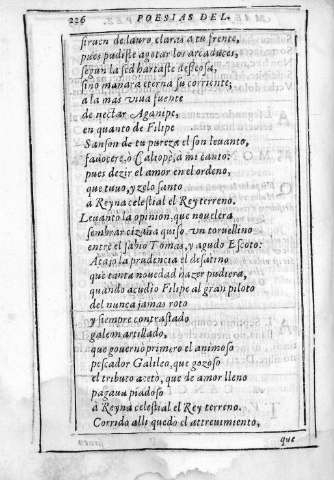 226 POESIAS DEL.
siruen de lauro, claras a tu frente,
pues pudiste agotar los arcaduces,
segun la sed hartaste desseosa,
sino manara eterna su corriente;
a la mas viua fuente
de nectar Aganipe,
en quanto de Filipe
Sanson de tu pureza el son leuanto,
fauorece, ò Caliope, a mi canto:
pues dezir el amor en el ordeno,
que tuuo, y zelo santo
a Reyna celestial el Rey terreno.
Leuanto la opinion, que nouelera
sembrar cizaña quiso, vn toruellino
entre el sabio Tomas, y agudo Escoto:
Atajo la prudencia el desatino
que tanta nouedad hazer pudiera,
quando acudio Filipe al gran piloto
del nunca jamas roto
y siempre contrastado
galeon artillado,
que gouernò primero el animoso
pescador Galileo, que gozoso
el tributo acetò, que de amor lleno
pagaua piadoso
a Reyna celestial el Rey terreno.
Corrida alli quedò el atreuimiento,
que